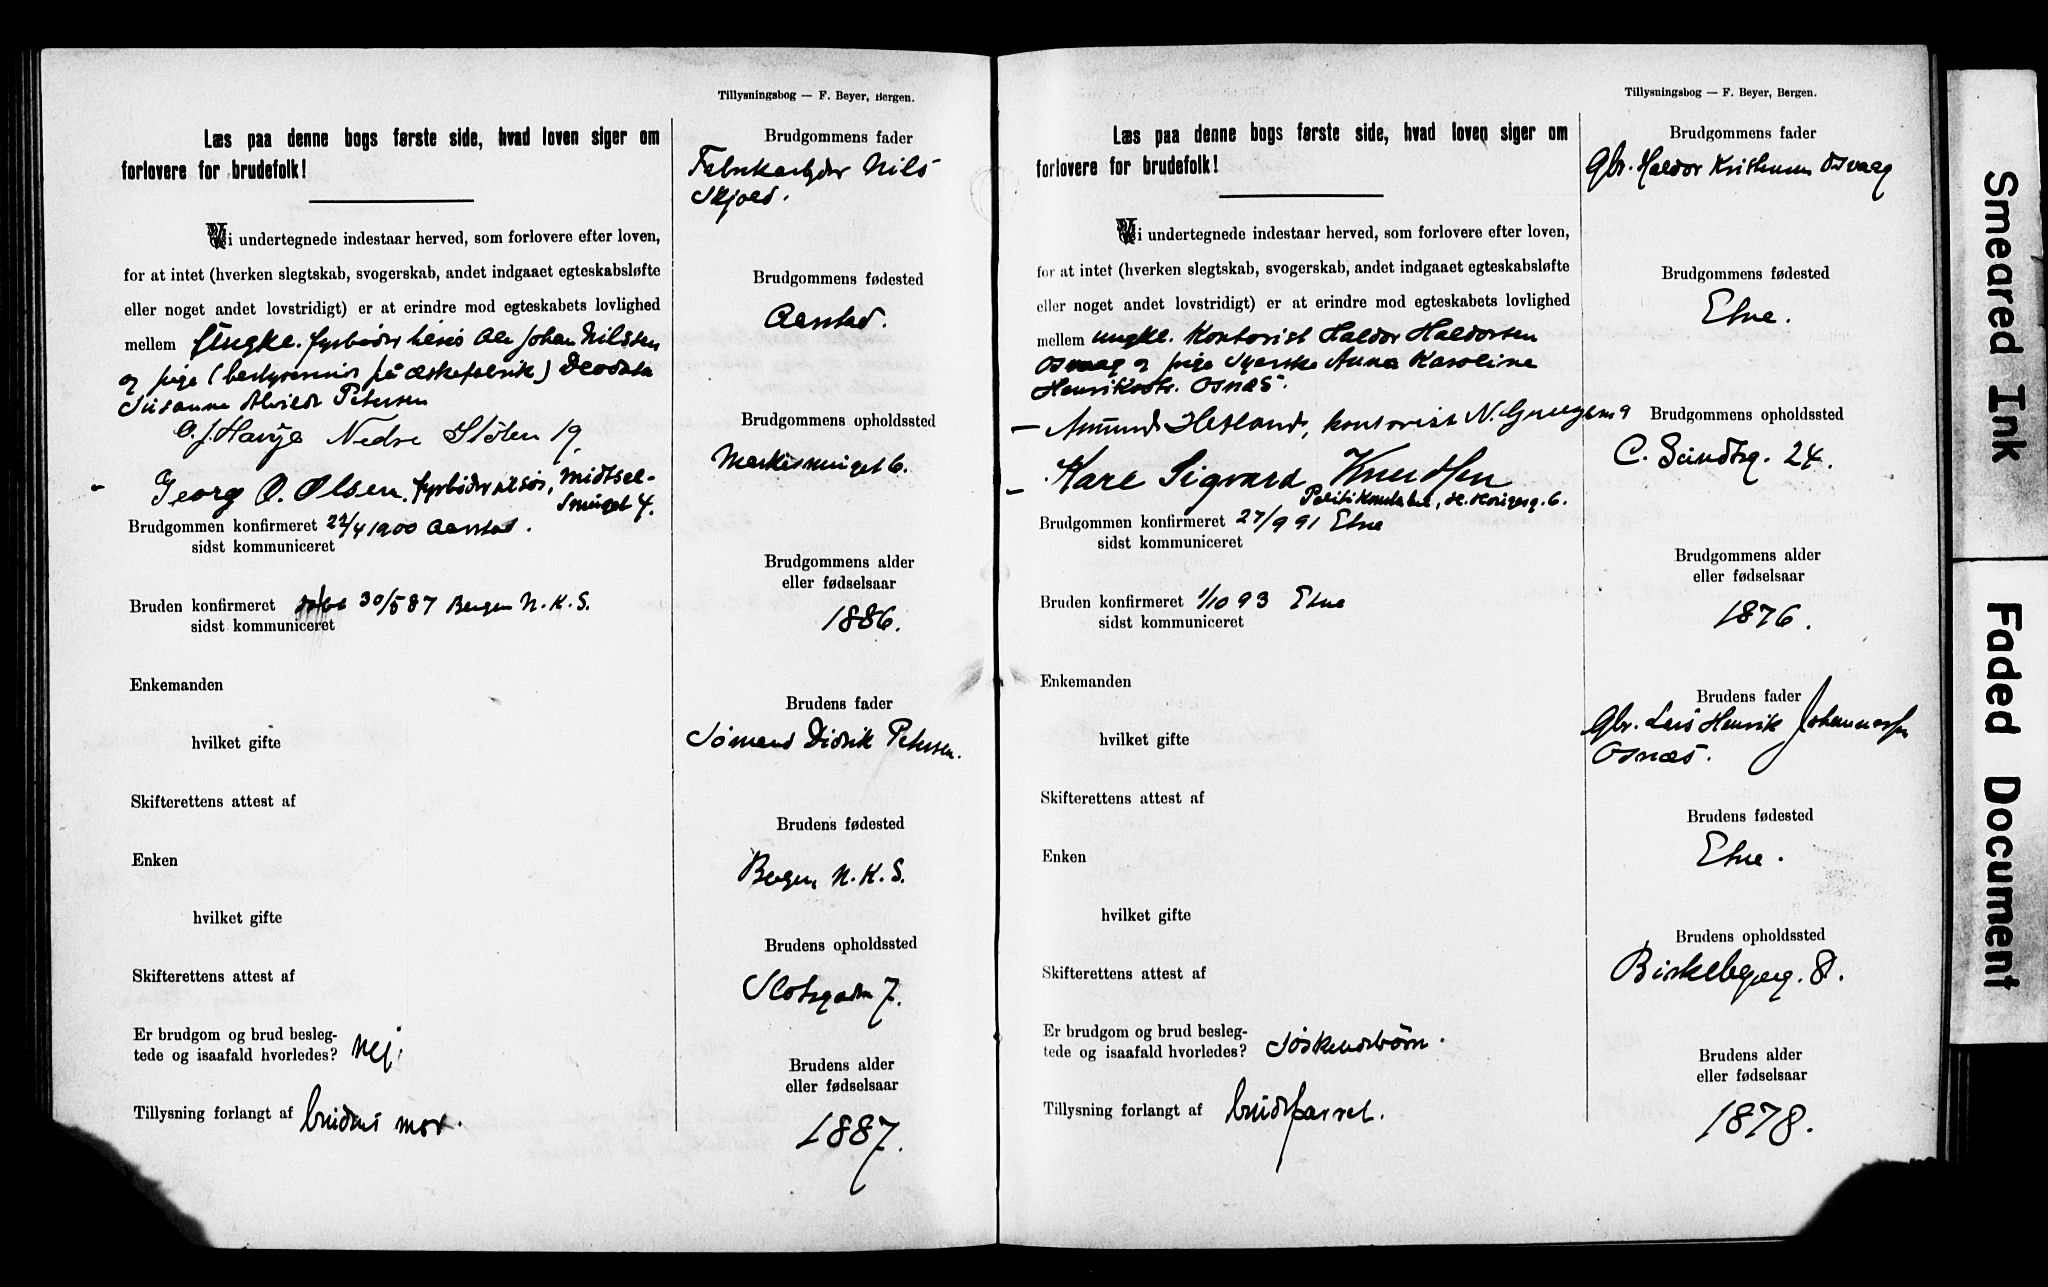 Tillysningsbog — F. Beyer, Bergen.
Læs paa denne bogs første side, hvad loven siger om
forlovere for brudefolk!
Vi undertegnede indestaar herved, som forlovere efter loven,
for at intet (hverken slegtskab, svogerskab, andet indgaaet egteskabsløfte
eller noget andet lovstridigt) er at erindre mod egteskabets lovlighed
mellem ungke. fyrbøder Ole Johan Nilsen
og pige (bestyrerinde på æskefabrik) Deodata
Susanne Alvilde Petersen
Nedre Stølen 19
Georg O. Olsen, fyrbøder, Midtsel-
smuget 4.
Brudgommen konfirmeret 22/4 1900 Aarstad.
sidst kommuniceret
Bruden konfirmeret døbt 30/5 87 Bergen N.K.S.
sidst kommuniceret
Enkemanden
hvilket gifte
Skifterettens attest af
Enken
hvilket gifte
Skifterettens attest af
Er brudgom og brud besleg-
tede og isaafald hvorledes? Nej.
Tillysning forlangt af brudens mor.
Brudgommens fader
Fabrikarbejder Nils
Skjold.
Brudgommens fødested
Aarstad.
Brudgommens opholdssted
Markesmuget 6.
Brudgommens alder
eller fødselsaar
1886.
Brudens fader
Sømand Didrik Petersen.
Brudens fødested
Bergen N.K.S.
Brudens opholdssted
Slotsgaden 7.
Brudens alder
eller fødselsaar
1887.
Tillysningsbog — F. Beyer, Bergen.
Læs paa denne bogs første side, hvad loven siger om
forlovere for brudefolk!
Vi undertegnede indestaar herved, som forlovere efter loven,
for at intet (hverken slegtskab, svogerskab, andet indgaaet egteskabsløfte
eller noget andet lovstridigt) er at erindre mod egteskabets lovlighed
mellem ungke. kontorist Haldor Haldorsen
Osvaag og pige Syerske Anna Karoline
Henriksdtr. Osnæs.
Amund Hetland, kontorist N.
Kare Sigvard Knudsen
Politikonstabel, H. Kongesg. 6.
Brudgommen konfirmeret 27/9 91 Etne
sidst kommuniceret
Bruden konfirmeret 1/10 93 Etne
sidst kommuniceret
Enkemanden
hvilket gifte
Skifterettens attest af
Enken
hvilket gifte
Skifterettens attest af
Er brudgom og brud besleg-
tede og isaafald hvorledes? Søskendebørn.
Tillysning forlangt af brudeparret.
Brudgommens fader
Gbr. Haldor Kristensen Osvaag
Brudgommens fødested
Etne.
Brudgommens opholdssted
C. Sundtsg. 24.
Brudgommens alder
eller fødselsaar
1876.
Brudens fader
Gbr. Lars Henrik Johannessen
Osnæs.
Brudens fødested
Etne.
Brudens opholdssted
Birkebejnerg. 8.
Brudens alder
eller fødselsaar
1878.
Smeared Ink
Faded Document